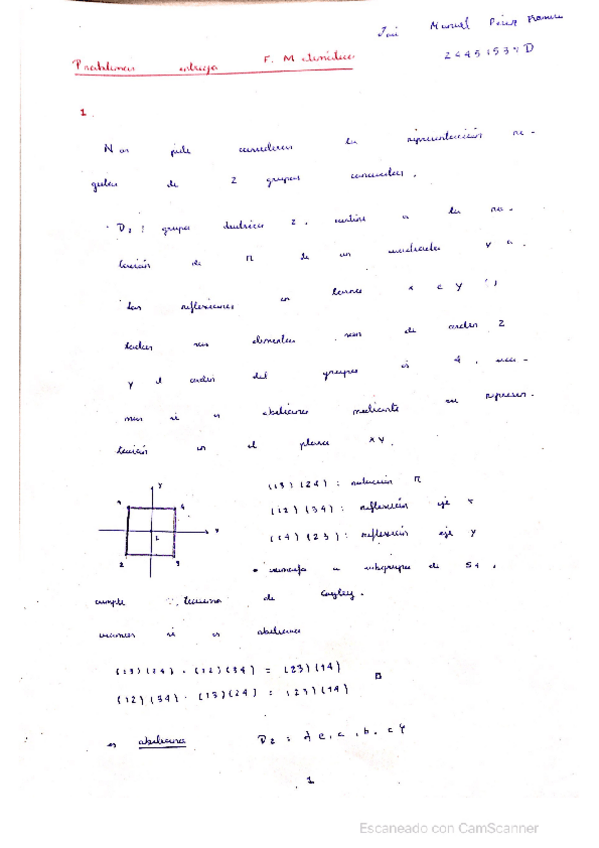 José Manuel Pérez
Problemas entrega F. Matemática
1.
Nos pide considerar la representación re-
gular de 2 grupos
· D2 : grupo 2, a la ro-
tación de π de un cuadrado y a
las reflexiones en torno x e y ,
todos sus elementos son de orden 2
y el orden del grupo es 4, vea-
mos si es abeliano mediante su represen-
tación en el plano xy.
y
x
1 4
2 3
(13)(24) : π
(12)(34) : reflexión eje x
(14)(23) : reflexión eje y
• subgrupo de S4,
cumple teorema de Cayley.
veamos si es abeliano
(13)(24) · (12)(34) = (23)(14)
(12)(34) · (13)(24) = (23)(14)
es abeliano D2 :
1
Escaneado con CamScanner